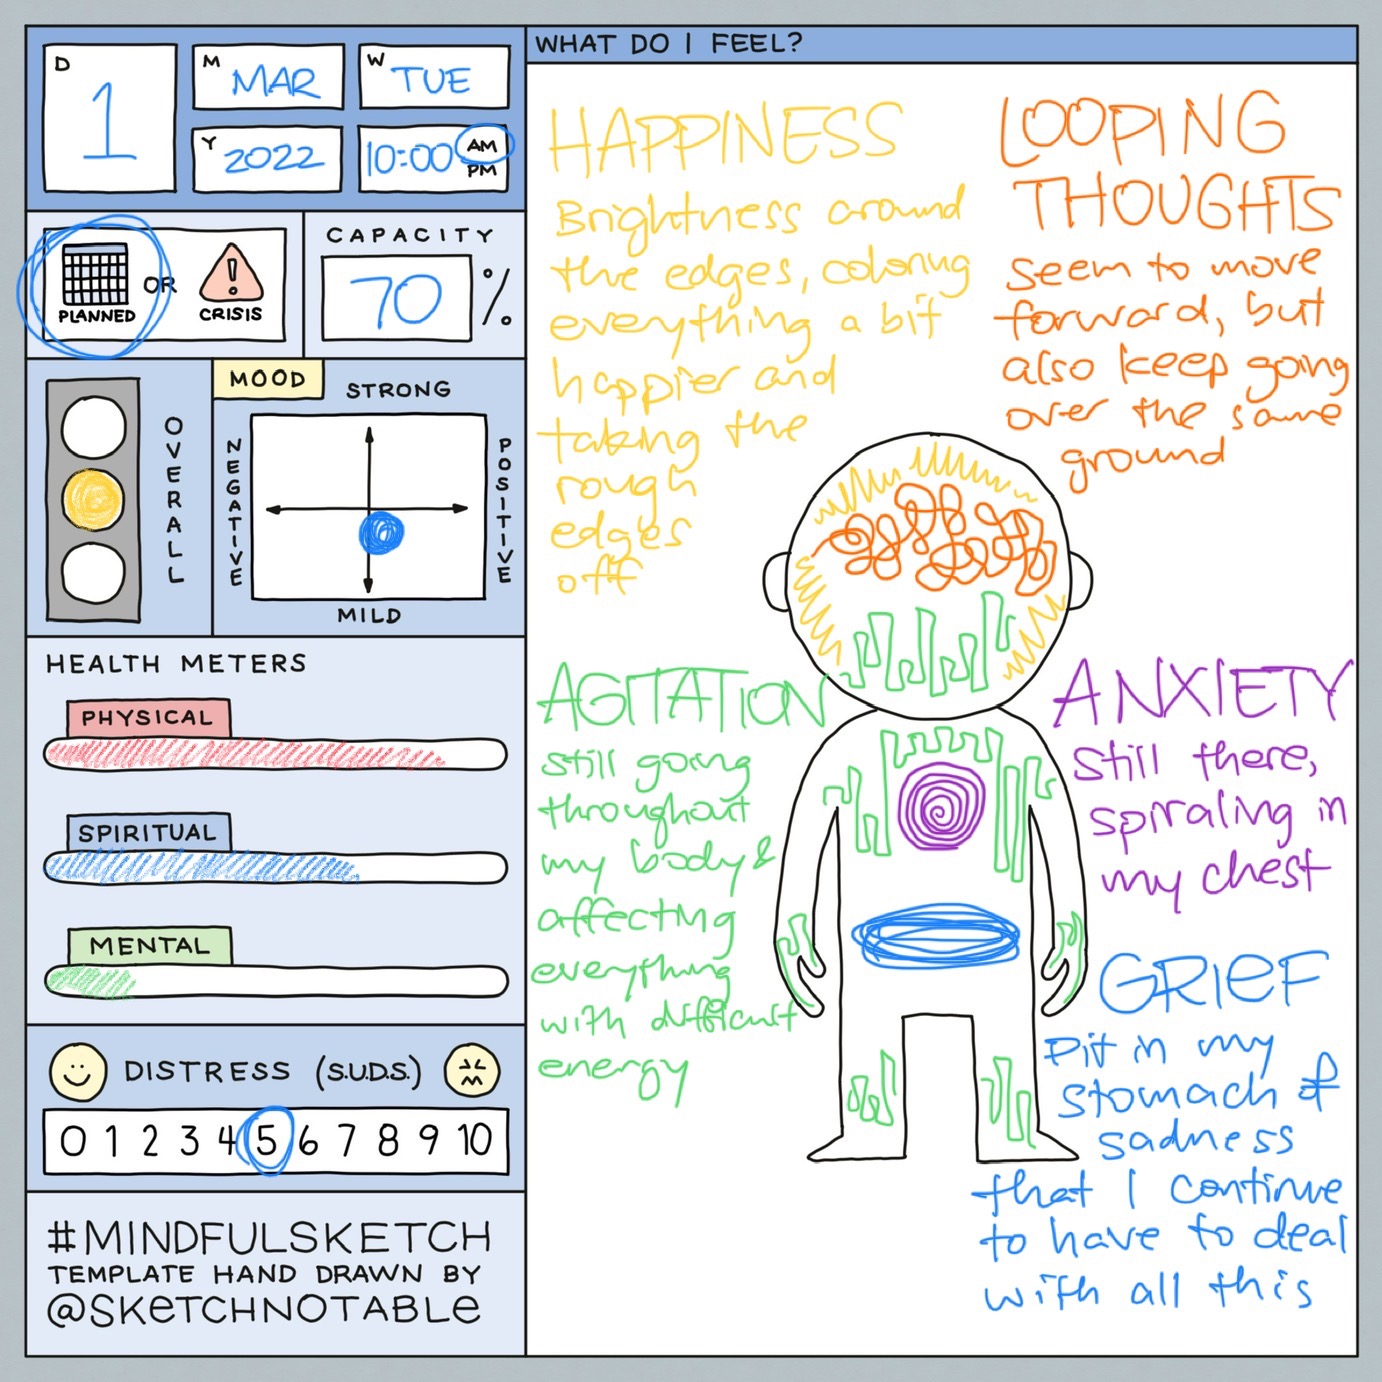 D
1
M
MAR
W
TUE
Y
2022
10:00 AM
PM
PLANNED
OR
CRISIS
CAPACITY
70 %
OVERALL
MOOD
STRONG
NEGATIVE
POSITIVE
MILD
HEALTH METERS
PHYSICAL
SPIRITUAL
MENTAL
DISTRESS (S.U.D.S.)
0 1 2 3 4 5 6 7 8 9 10
#MINDFULSKETCH
TEMPLATE HAND DRAWN BY
@SKETCHNOTABLE
WHAT DO I FEEL?
HAPPINESS
Brightness around
the edges, coloring
everything a bit
happier and
taking the
rough
edges
off
LOOPING
THOUGHTS
seem to move
forward, but
also keep going
over the same
ground
AGITATION
still going
throughout
my body &
affecting
everything
with difficult
energy
ANXIETY
still there,
spiraling in
my chest
GRIEF
pit in my
stomach of
sadness
that I continue
to have to deal
with all this